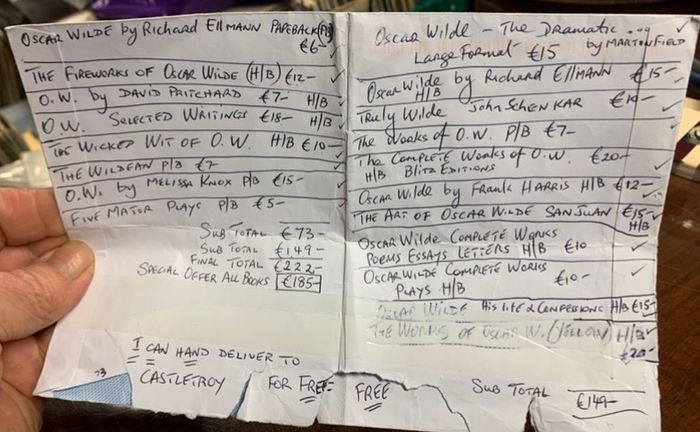 OSCAR WILDE by Richard Ellmann PAPEBACK (PB)
€6-
THE FIREWORKS OF OSCAR WILDE (H/B) €12-
O.W. by DAVID PRITCHARD €7- H/B
O.W. SELECTED WRITINGS €18- H/B
THE WICKED WIT OF O.W. H/B €10-
THE WILDEAN P/B €7
O.W. by MELISSA KNOX P/B €15-
FIVE MAJOR PLAYS P/B €5-
SUB TOTAL €73-
SUB TOTAL €149-
FINAL TOTAL €222-
SPECIAL OFFER ALL BOOKS €185-
I CAN HAND DELIVER TO
CASTLETROY FOR FREE
73
OSCAR WILDE - THE DRAMATIC ...
LARGE FORMAT €15 by MARTIN FIELD
Oscar Wilde by Richard Ellmann €15-
H/B
Truly Wilde John SCHENKAR
The Works of O.W. P/B €7-
The COMPLETE Works of O.W. €20-
H/B BLITZ EDITIONS
Oscar Wilde by Frank HARRIS H/B €12-
THE ART OF OSCAR WILDE SAN JUAN €15-
H/B
OSCAR Wilde COMPLETE WORKS
POEMS ESSAYS LETTERS H/B €10
OSCAR WILDE COMPLETE WORKS
PLAYS H/B €10-
OSCAR WILDE HIS LIFE & CONFESSIONS H/B €15-
THE WORKS OF OSCAR W. (YELLOW) H/B
€20-
FREE
SUB TOTAL €149-